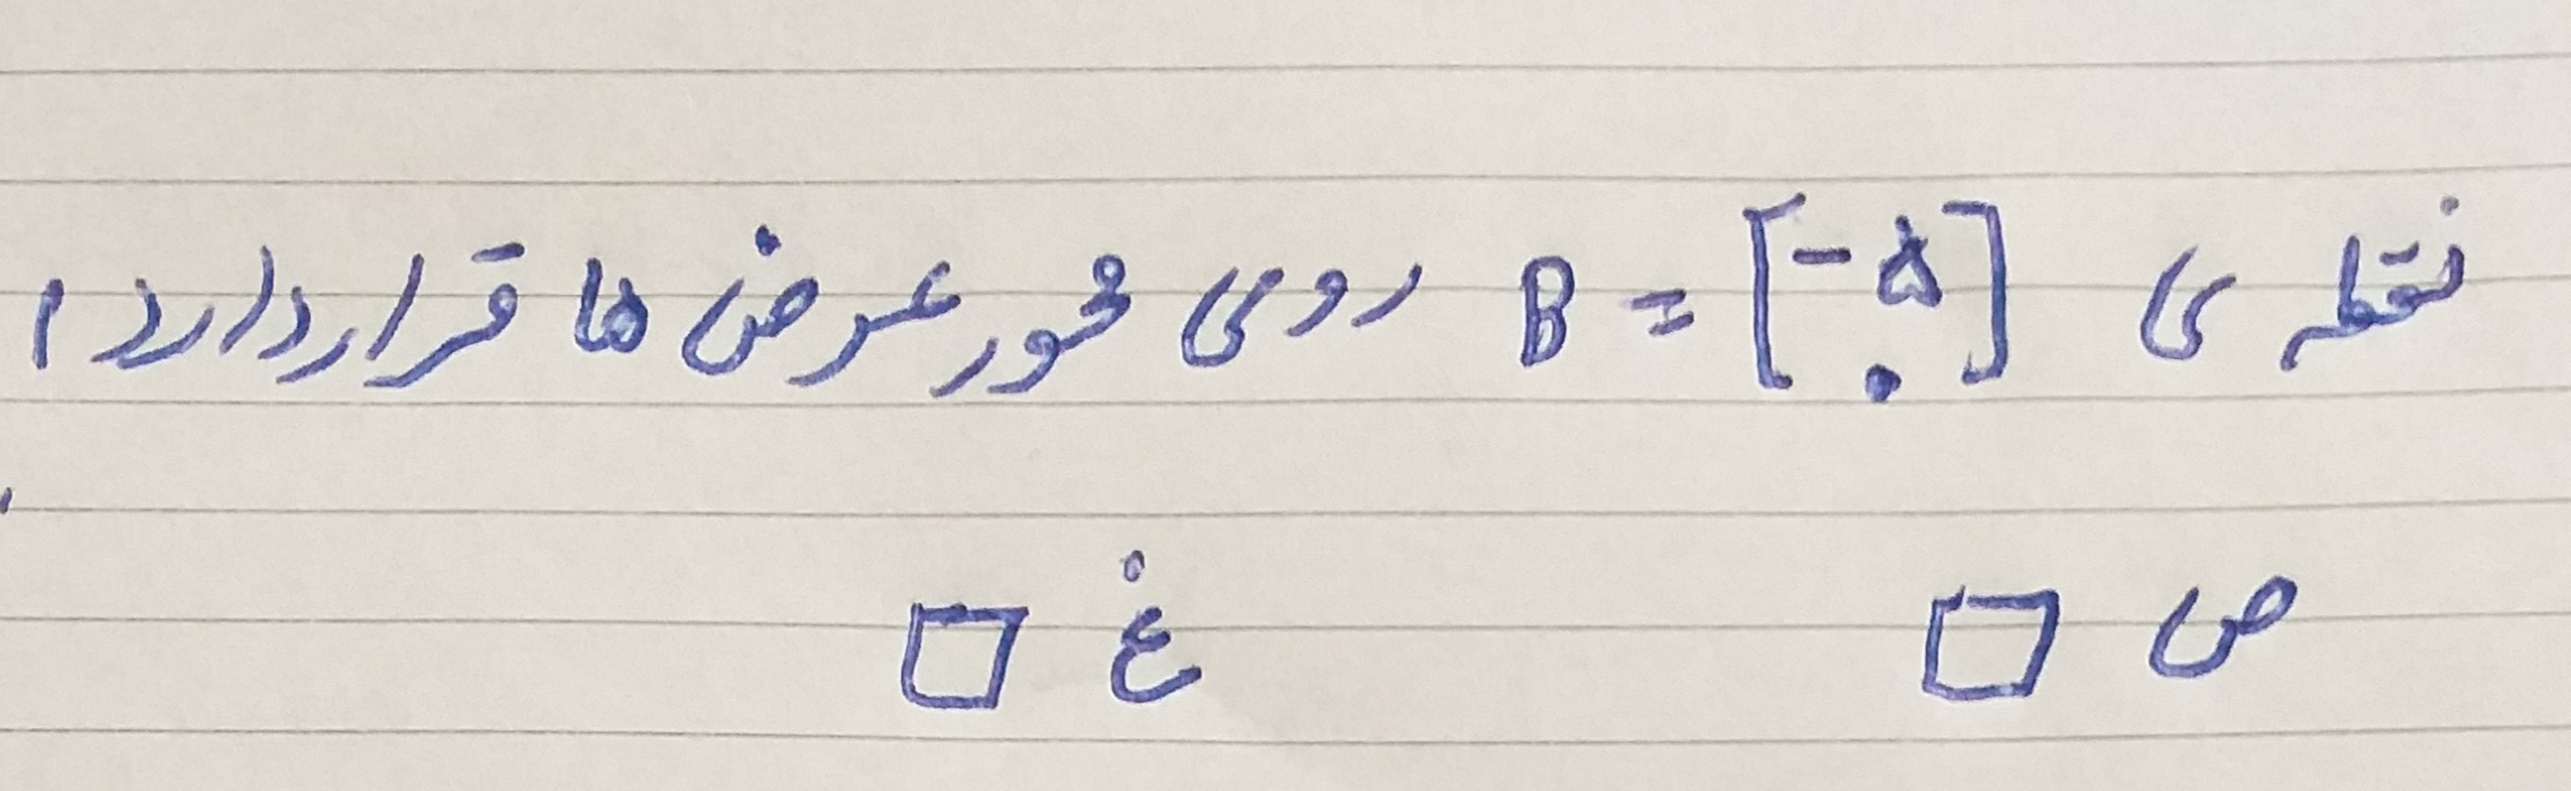 نقطه ی B = [-۵ ۰] روی محور عرض ها قرار دارد؟
ص □ غ □